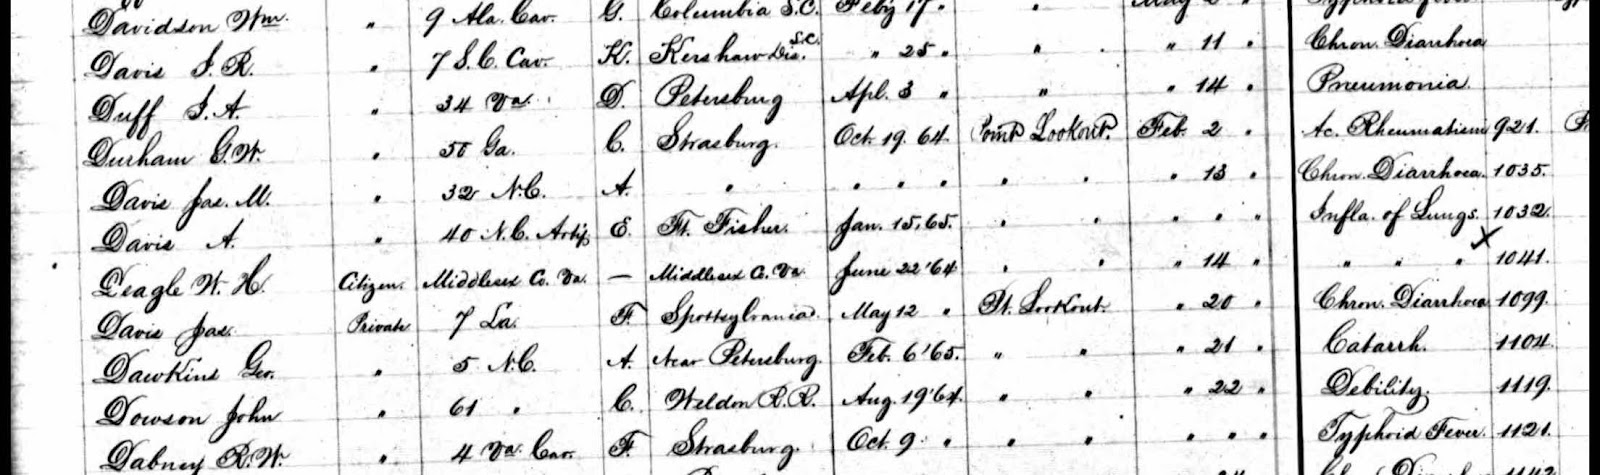 Davidson Wm. " 9 Ala. Cav. G. Columbia S.C. Feb'y 17 " " May 2 "
Davis J. R. " 7 S.C. Cav. K. Kershaw Dis. S.C. " 25 " " " 11 " Chron. Diarrhoea
Duff J. A. " 34 Va. D. Petersburg Apl. 3 " " " 14 " Pneumonia
Durham G. W. " 50 Ga. C. Strasburg. Oct. 19. 64. Point Lookout. Feb. 2 " Ac. Rheumatism 921.
Davis Jas. M. " 32 N.C. A. " " " " " " " 13 " Chron. Diarrhoea. 1035.
Davis A. " 40 N.C. Arty. E. Ft. Fisher. Jan. 15, 65. " " " " " Infla. of Lungs. 1032.
Deagle W. H. Citizen. Middlesex Co. Va. — Middlesex Co. Va. June 22 '64 " " " 14 " " " " X 1041.
Davis Jas. Private 7 La. F. Spottsylvania. May 12 " Pt. Lookout. " 20 " Chron. Diarrhoea 1099.
Dawkins Geo. " 5 N.C. A. Near Petersburg. Feb. 6 '65. " " " 21 " Catarrh. 1104.
Dowson John " 61 " C. Weldon R.R. Aug. 19 '64. " " " 22 " Debility. 1119.
Dabney R. W. " 4 Va. Cav. F. Strasburg. Oct. 9 " " " " " " Typhoid Fever. 1121.